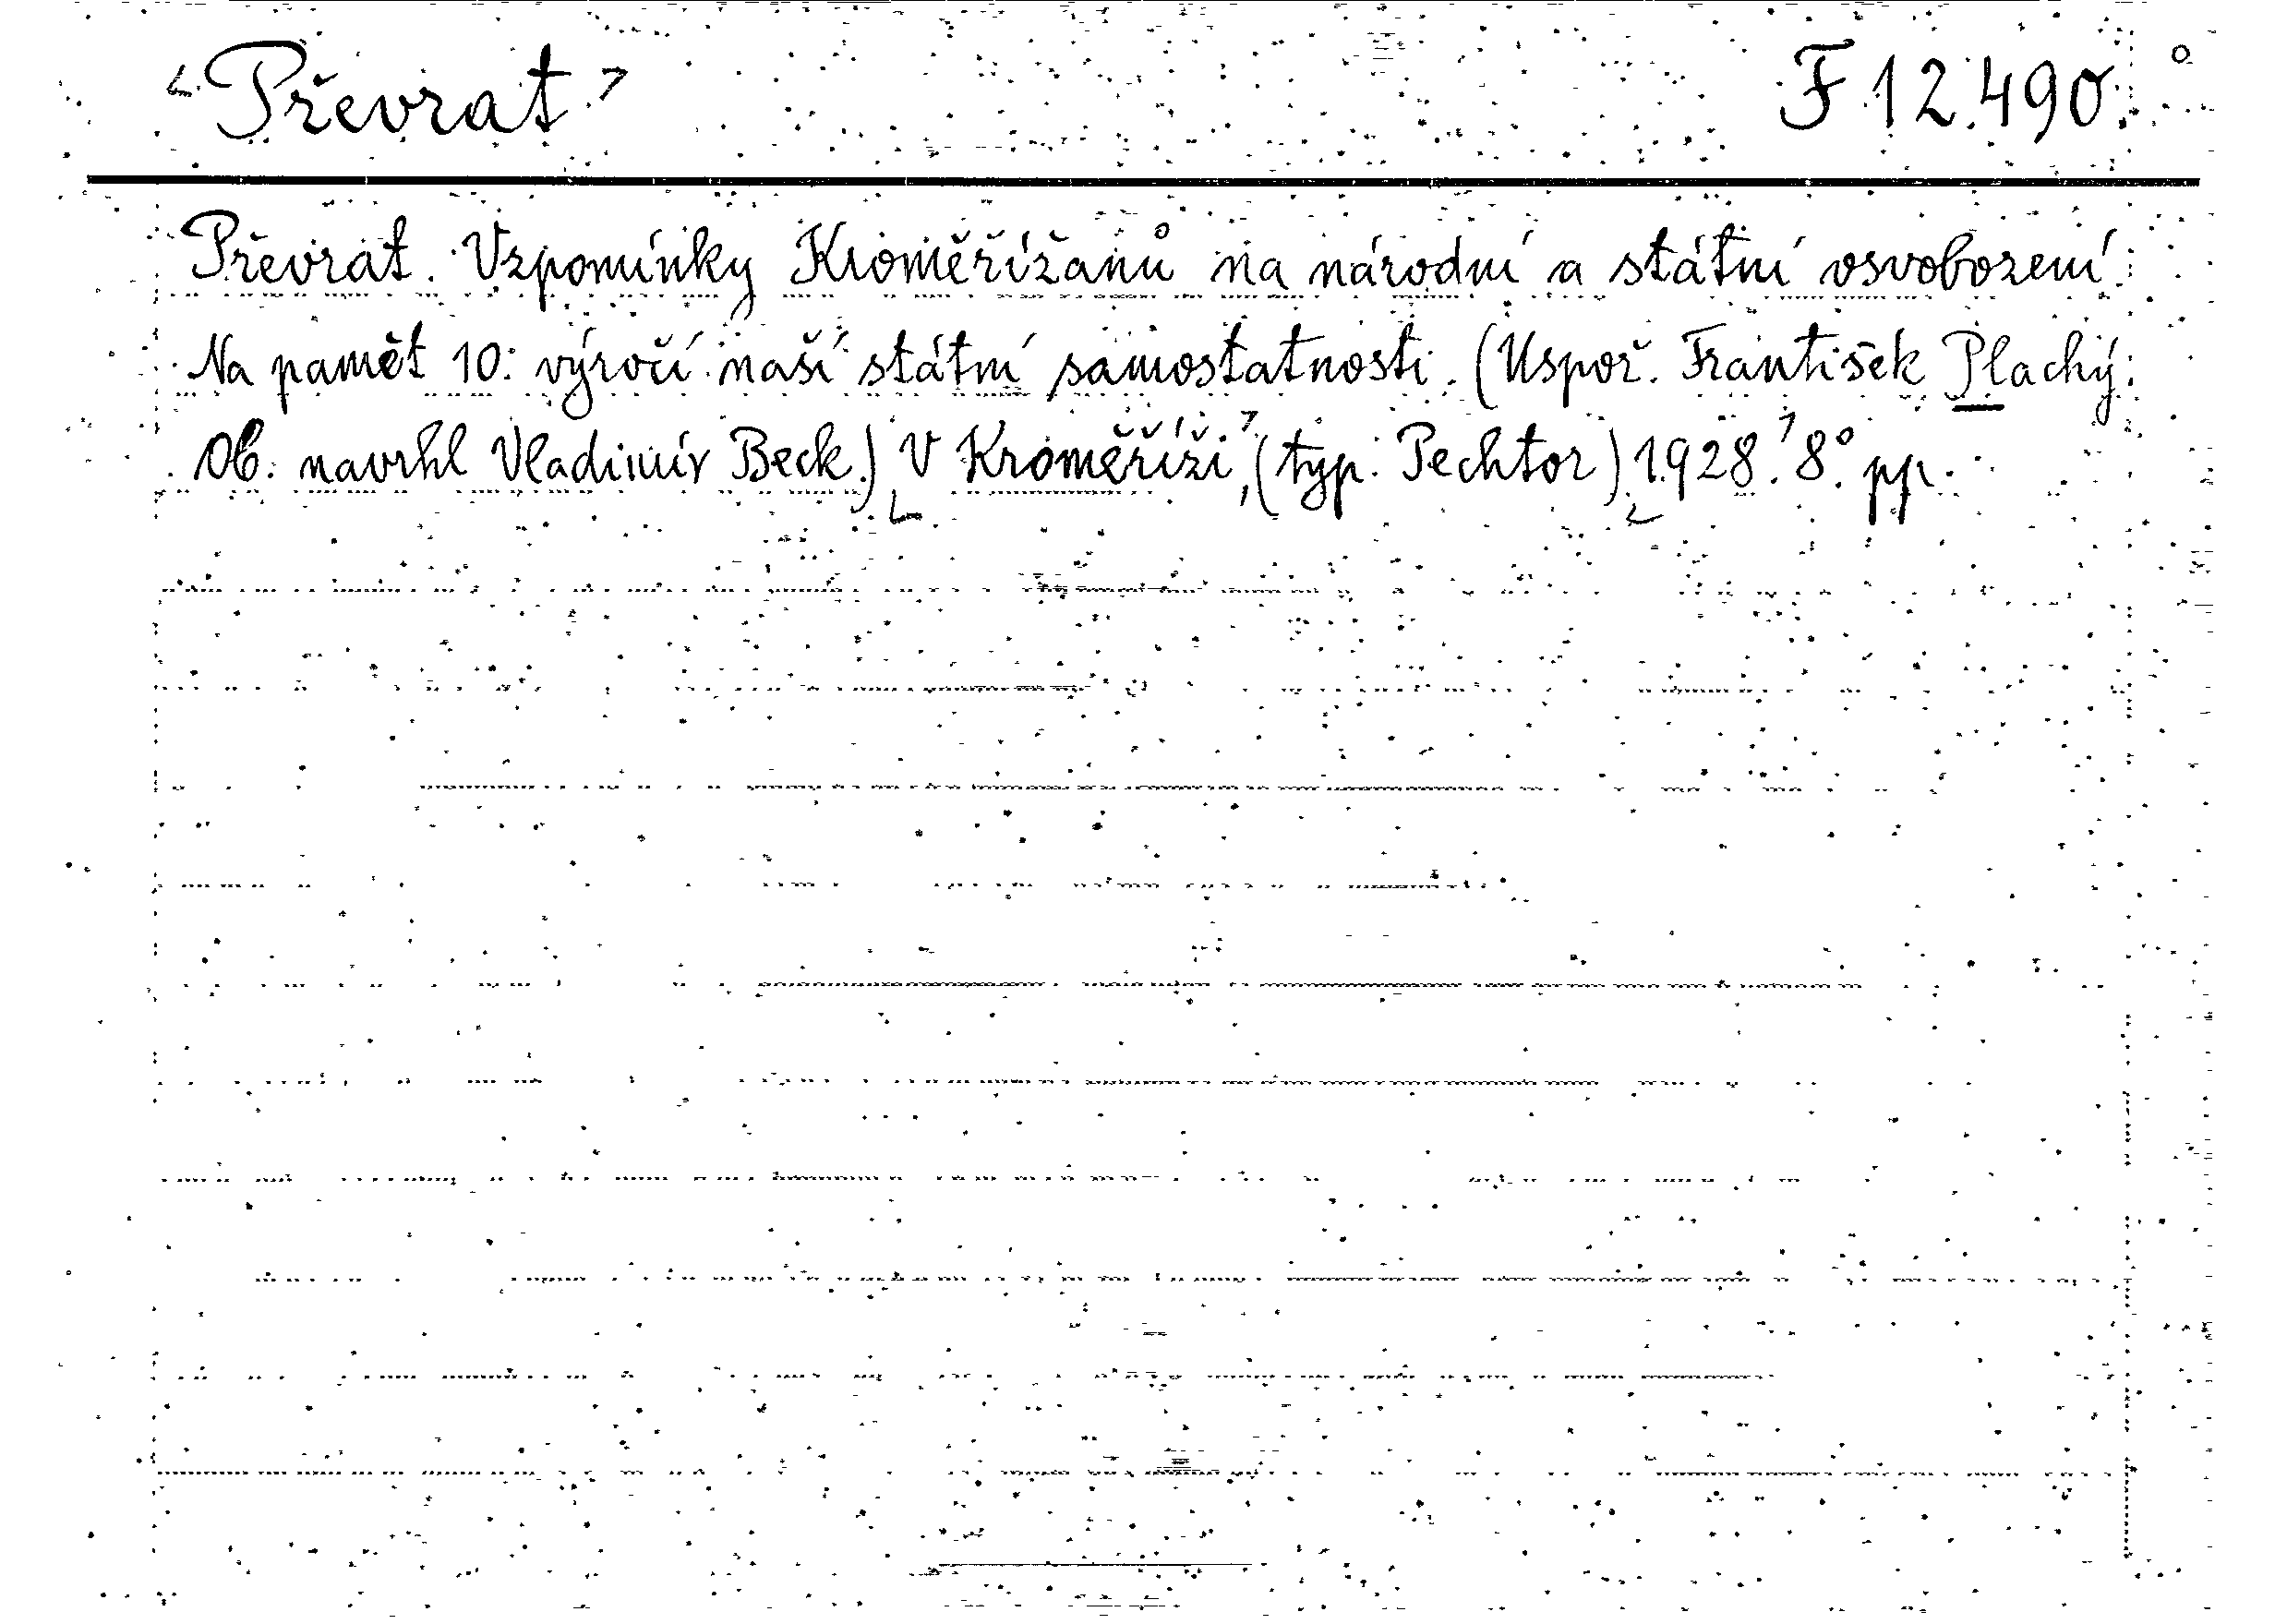 <Převrat> F 12.490.
Převrat. Vzpomínky Kroměřížanů na národní a státní osvobození.
Na paměť 10. výročí naší státní samostatnosti. (Uspoř. František Plachý.
Ob. navrhl Vladimír Beck.) V Kroměříži, (typ. Pechtor) 1928. 8°. pp.